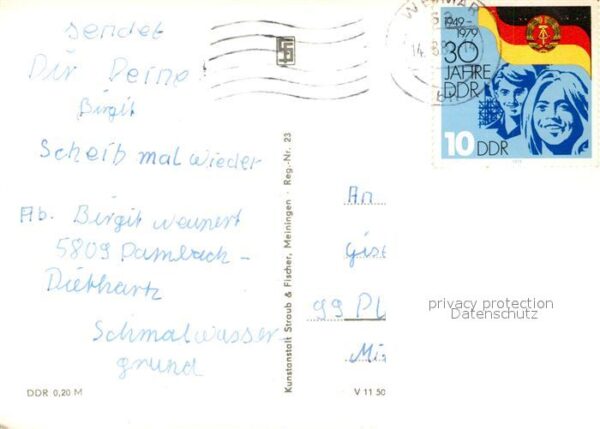 sendet
Dir Deine
Birgit
Scheib mal wieder
Ab. Birgit
5809 Dambach-
Diethartz
Schmalwasser-
grund
DDR 0,20 M
Kunstanstalt Straub & Fischer, Meiningen · Reg.-Nr. 23
V 11 50
WEIMAR
1949-
1979
30
JAHRE
DDR
10 DDR
An
Gis
99 Pl
privacy protection
Datenschutz